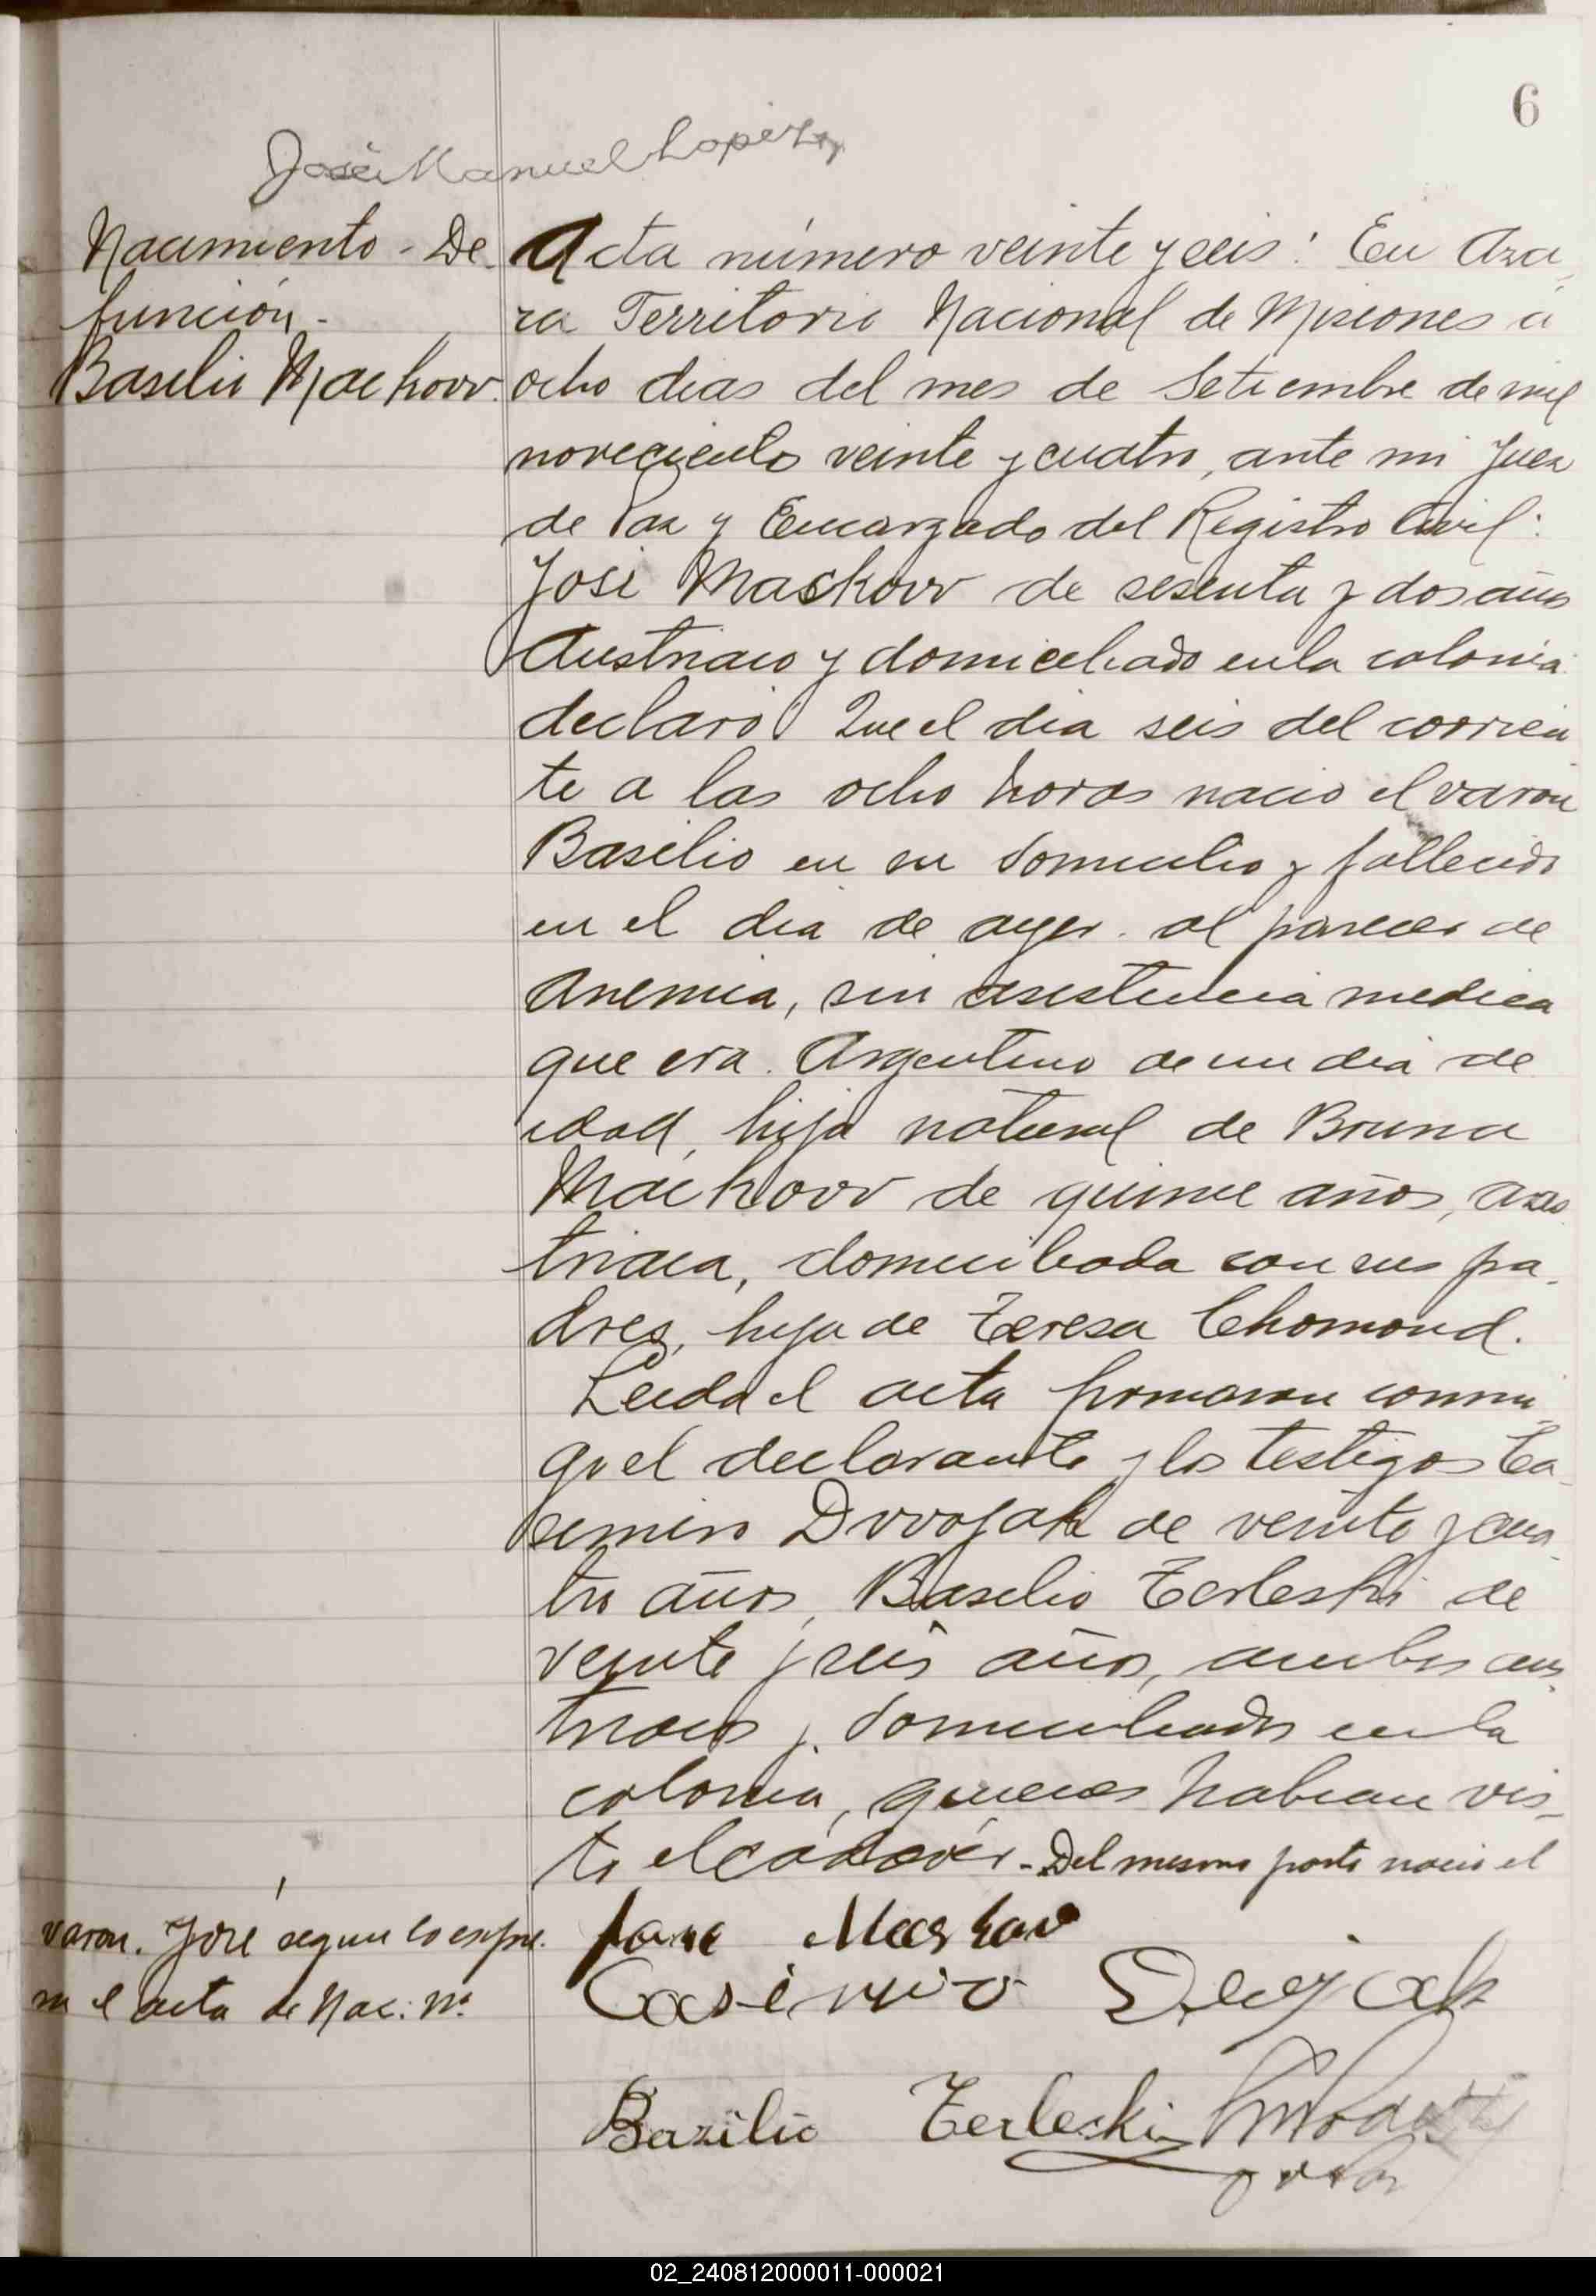 6
José Manuel Lopez
Nacimiento - De
función -
Basilio Mackow.
Acta número veinte y seis: En Aza
ra Territorio Nacional de Misiones a
ocho dias del mes de Setiembre de mil
novecientos veinte y cuatro, ante mi Juez
de Paz y Encargado del Registro Civil:
José Maskow de sesenta y dos años
Austriaco y domiciliado en la colonia
declaró Que el dia seis del corrien
te a las ocho horas nacio el varon
Basilio en su domicilio y fallecido
en el dia de ayer. al parecer de
Anemia, sin asistencia medica
que era. Argentino de un dia de
edad, hijo natural de Bruna
Mackow de quince años, aus
triaca, domiciliada con sus pa-
dres, hija de Teresa Chomond.
Leida el acta firmaron conmi
go el declarante y los testigos Ca-
semiro Dwojak de veinte y cua
tro años, Basilio Terleski de
veinte y seis años, ambos aus
triacos y domiciliados en la
colonia, quienes habian vis-
to el cadaver. - Del mismo parto nacio el
varon. José segun lo expre
sa el acta de Nac: Nº
Jose Maskow
Casimiro
Bazilio Terleski